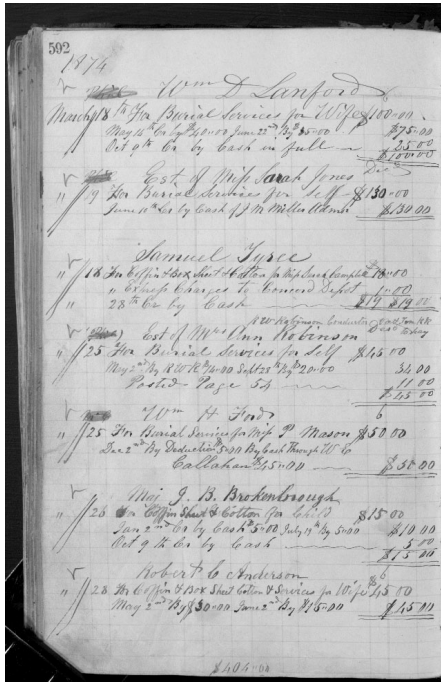 592
1874
Wm D Lanford
March 18th For Burial Services for Wife $100.00
May 16th Cr by $40.00 June 22nd By $35.00 $75.00
Oct 9th Cr by Cash in full 25 00
$100.00
Est. of Miss Sarah Jones
" 19 For Burial Services for Self $130.00
June 10th Cr by Cash of J M Miller Admr $130.00
Samuel Tyree
" 18 For Coffin & Box Sheet & Cotton for Miss Campbell 18.00
" Express Charges to Concord Depot 1.00
" 28th Cr by Cash $19 $19.00
R W Robinson Conductor
Est of Mrs Ann Robinson
" 25 For Burial Services for Self $45.00
May 2nd By R W R $14.00 Sept 28th By $20.00 34 00
Posted Page 54 11 00
$45.00
Wm H Ford 6
" 25 For Burial Services for Miss P Mason $50 00
Dec 2nd By Deduction $5.00 By Cash Through W
Callahan $45.00 $50.00
Maj J. B. Brokenborough
" 26 For Coffin Sheet & Cotton for Child $15 00
Jan 2nd Cr by Cash $5.00 July 19th By 5.00 $10 00
Oct 9th Cr by Cash 5 00
$15 00
Robert C Anderson 6
" 28 For Coffin & Box Sheet Cotton & Services for Wife $45 00
May 2nd By $30.00 June 2nd By $15.00 $45 00
$404.00